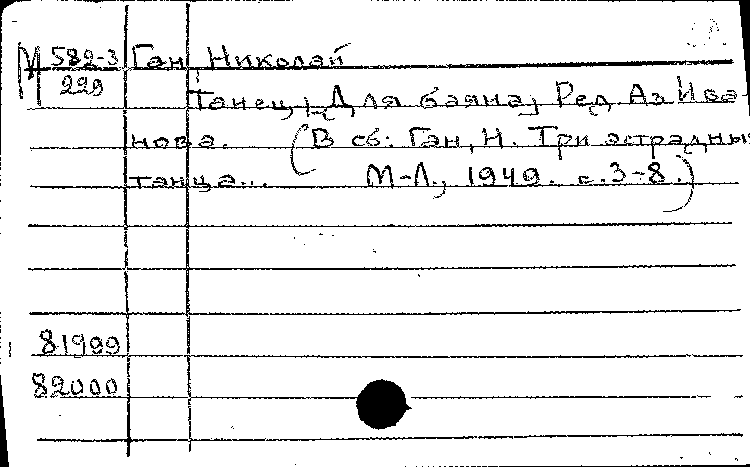 М 582-3 Ган Николай
229
Танец; [Для баяна] Ред. Аз. Ива-
нова. (В сб: Ган, Н. Три эстрадных
танца... М-Л., 1949. с. 3-8.)
81999
82000